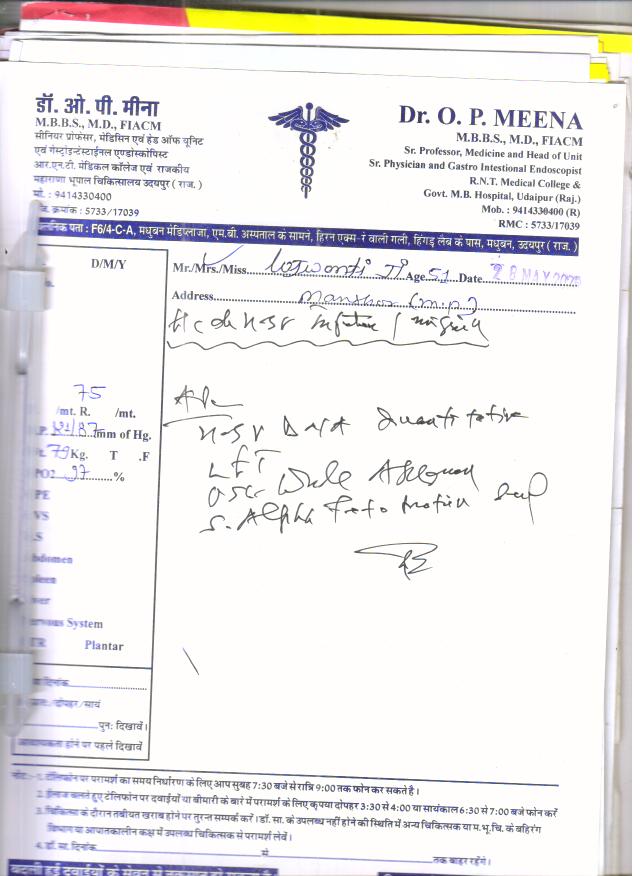 डॉ. ओ. पी. मीना
M.B.B.S., M.D., FIACM
सीनियर प्रोफेसर, मेडिसिन एवं हेड ऑफ यूनिट
एवं गेस्ट्रोइन्टेस्टाईनल एण्डोस्कोपिस्ट
आर.एन.टी. मेडिकल कॉलेज एवं राजकीय
महाराणा भूपाल चिकित्सालय उदयपुर ( राज. )
मो. : 9414330400
जि. क्रमांक : 5733/17039
Dr. O. P. MEENA
M.B.B.S., M.D., FIACM
Sr. Professor, Medicine and Head of Unit
Sr. Physician and Gastro Intestional Endoscopist
R.N.T. Medical College &
Govt. M.B. Hospital, Udaipur (Raj.)
Mob. : 9414330400 (R)
RMC : 5733/17039
पता : F6/4-C-A, मधुबन मेडिप्लाजा, एम.बी. अस्पताल के सामने, हिरन एक्स-रे वाली गली, हिंगड़ लैब के पास, मधुबन, उदयपुर ( राज. )
D/M/Y
Mr./Mrs./Miss. Age 51 Date 28 MAY
Address (M.P.)
75
/mt. R. /mt.
mm of Hg.
79 Kg. T .F
PO2 97 %
PE
VS
.S
bdomen
leen
ver
ervous System
TR Plantar
दिनांक
/दोपहर /सायं
पुनः दिखावें।
आवश्यकता होने पर पहले दिखावें
Adv
DNA Quantitative
LFT
USG Whole Abdomen
S. Alpha Feto Protein
नोट :- 1. टेलिफोन पर परामर्श का समय निर्धारण के लिए आप सुबह 7:30 बजे से रात्रि 9:00 तक फोन कर सकते है।
2. ईलाज चलते हुए टेलिफोन पर दवाईयों या बीमारी के बारे में परामर्श के लिए कृपया दोपहर 3:30 से 4:00 या सायंकाल 6:30 से 7:00 बजे फोन करें
3. चिकित्सा के दौरान तबीयत खराब होने पर तुरन्त सम्पर्क करें। डॉ. सा. के उपलब्ध नहीं होने की स्थिति में अन्य चिकित्सक या म.भू.चि. के बहिरंग
विभाग या आपातकालीन कक्ष में उपलब्ध चिकित्सक से परामर्श लेवें।
4. डॉ. सा. दिनांक से तक बाहर रहेंगे।